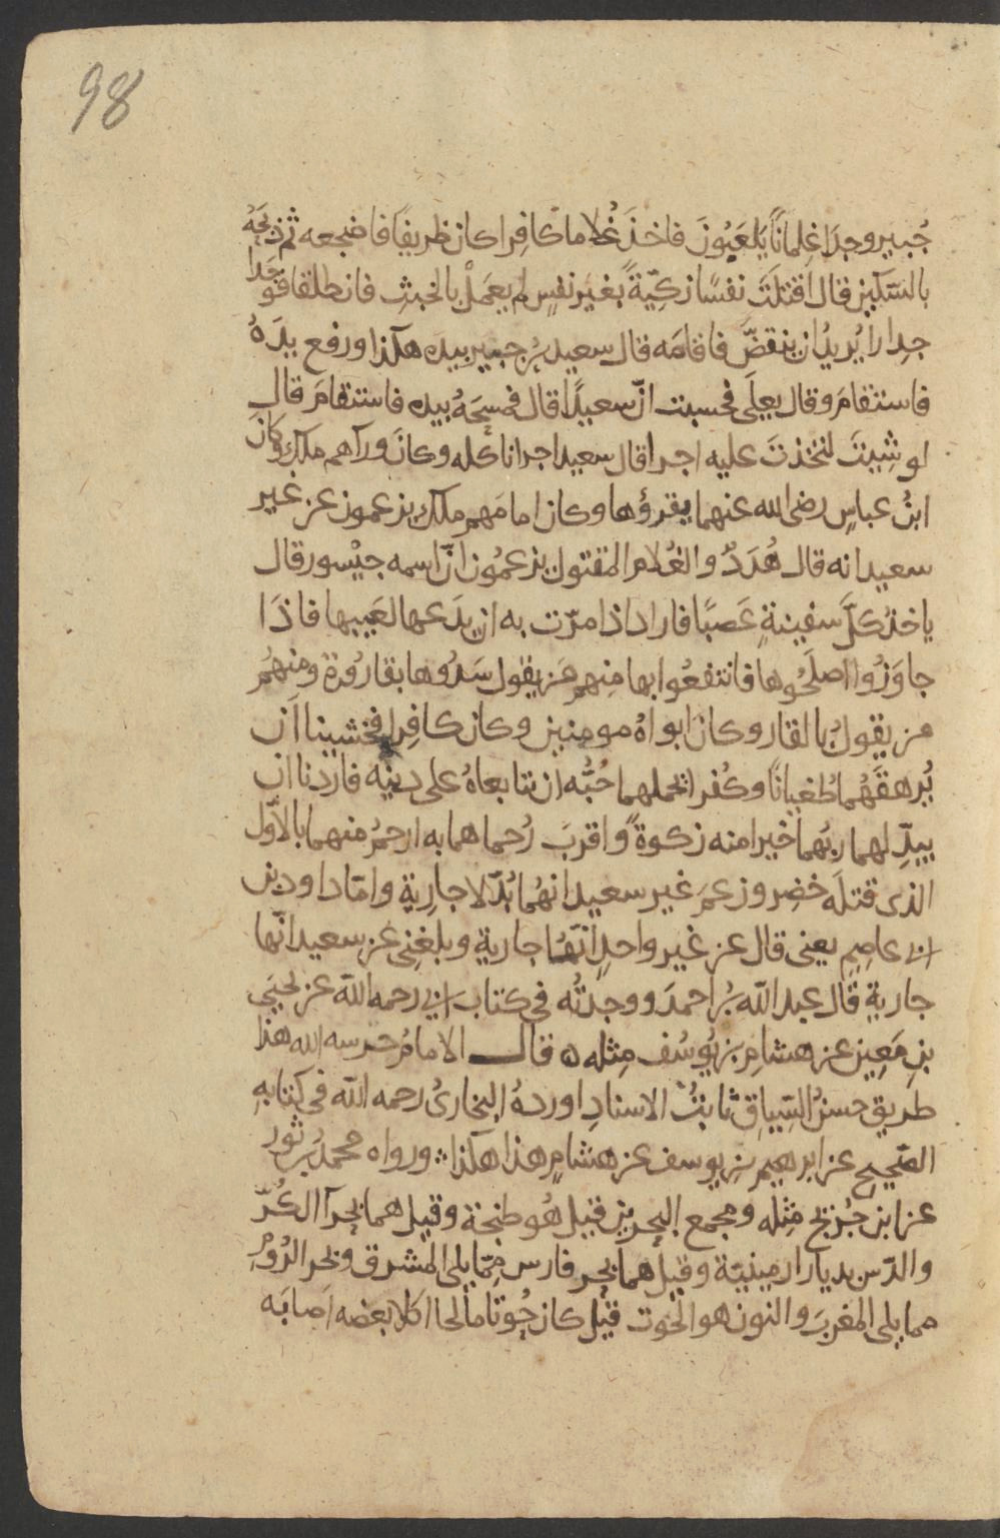 98
جُبير وجدَا غِلمانًا يَلعَبُونَ فاخذَ غُلاما كافِرا كان ظريفًا فاضجعه ثم ذبحَهُ
بالسّكين قال اقتلَتَ نفسًا زكيّةً بغَير نفسٍ لم يعمَلْ بالخبثِ فانطلقا فوجَدا
جِدارا يُريدُ ان ينقضّ فاقامَه قال سعيد بْرُ جبير بيده هكذا ورفع يدَهُ
فاستقامَ وقال يعلَى فحسبت انّ سعيدًا قال فمسحَهُ بيده فاستقامَ قال
لو شِيتَ لتخذتَ عليه اجرا قال سعيد اجرا ناكله وكانَ ورآهم ملك وكانَ
ابنُ عباسٍ رضى الله عنهما يقرؤها وكان امامَهم ملك يزعمون عن غير
سعيد انه قال هُدَدُ والغُلام المقتول يزعمُون انّ اسمه جيْسور قال
ياخذ كلَّ سفينةٍ غَصبًا فاراد اذا مرّت به ان يدَعها لعَيبها فاذَا
جاوَزُوا اصلَحُوها فانتفعُوا بها مِنهم مَن يقول سَدُوها بقارُورة ومنهُم
من يقولُ بالقار وكانَ ابواهُ مومنين وكان كافِرا فخشينا ان
يُرهقَهُما طُغيانًا وكُفرا يحملهما حُبُّه ان يتابعاهُ على دينِه فاردنا ان
يبدِّلهما ربُهما خيرا منه زكوةً واقربَ رُحما هما به ارحمُ منهما بالاَوّل
الذى قتلَه خضِر وزعمَ غير سعيد انهُما بُدّلا جارِيةٍ وامّا داود بن
ابى عاصِمٍ يعنى قال عن غير واحدٍ انّها جارية وبلغنِى عن سعيد انّها
جارية قال عبد الله بْرُ احمدَ ووجدتُه فى كتاب ابى رحمه الله عن يحيَى
بنِ مَعِين عن هشامِ بن يُوسُف مِثله ه قال الامامُ حرسه الله هذا
طريق حسنُ السِّياقِ ثابتُ الاسنادِ اوردهُ البخارىُ رحمه الله فى كتابهِ
الصّحيح عن ابرهيم بن يوسف عن هشامٍ هذا هكذا ورواه محمدُ بْرُ ثور
عن ابن جُرَيج مِثله ومجمع البحرين قيل هُو طنجة وقيل هما بحرا الكُرّ
والرّس بديار ارمينيّة وقيل هما بحر فارس مِمّا يلى المشرق وبحر الرُومِ
مما يلى المغربَ والنون هو الحوت قيْل كان حُوتا مالحا اكلا بعضه اصابَه